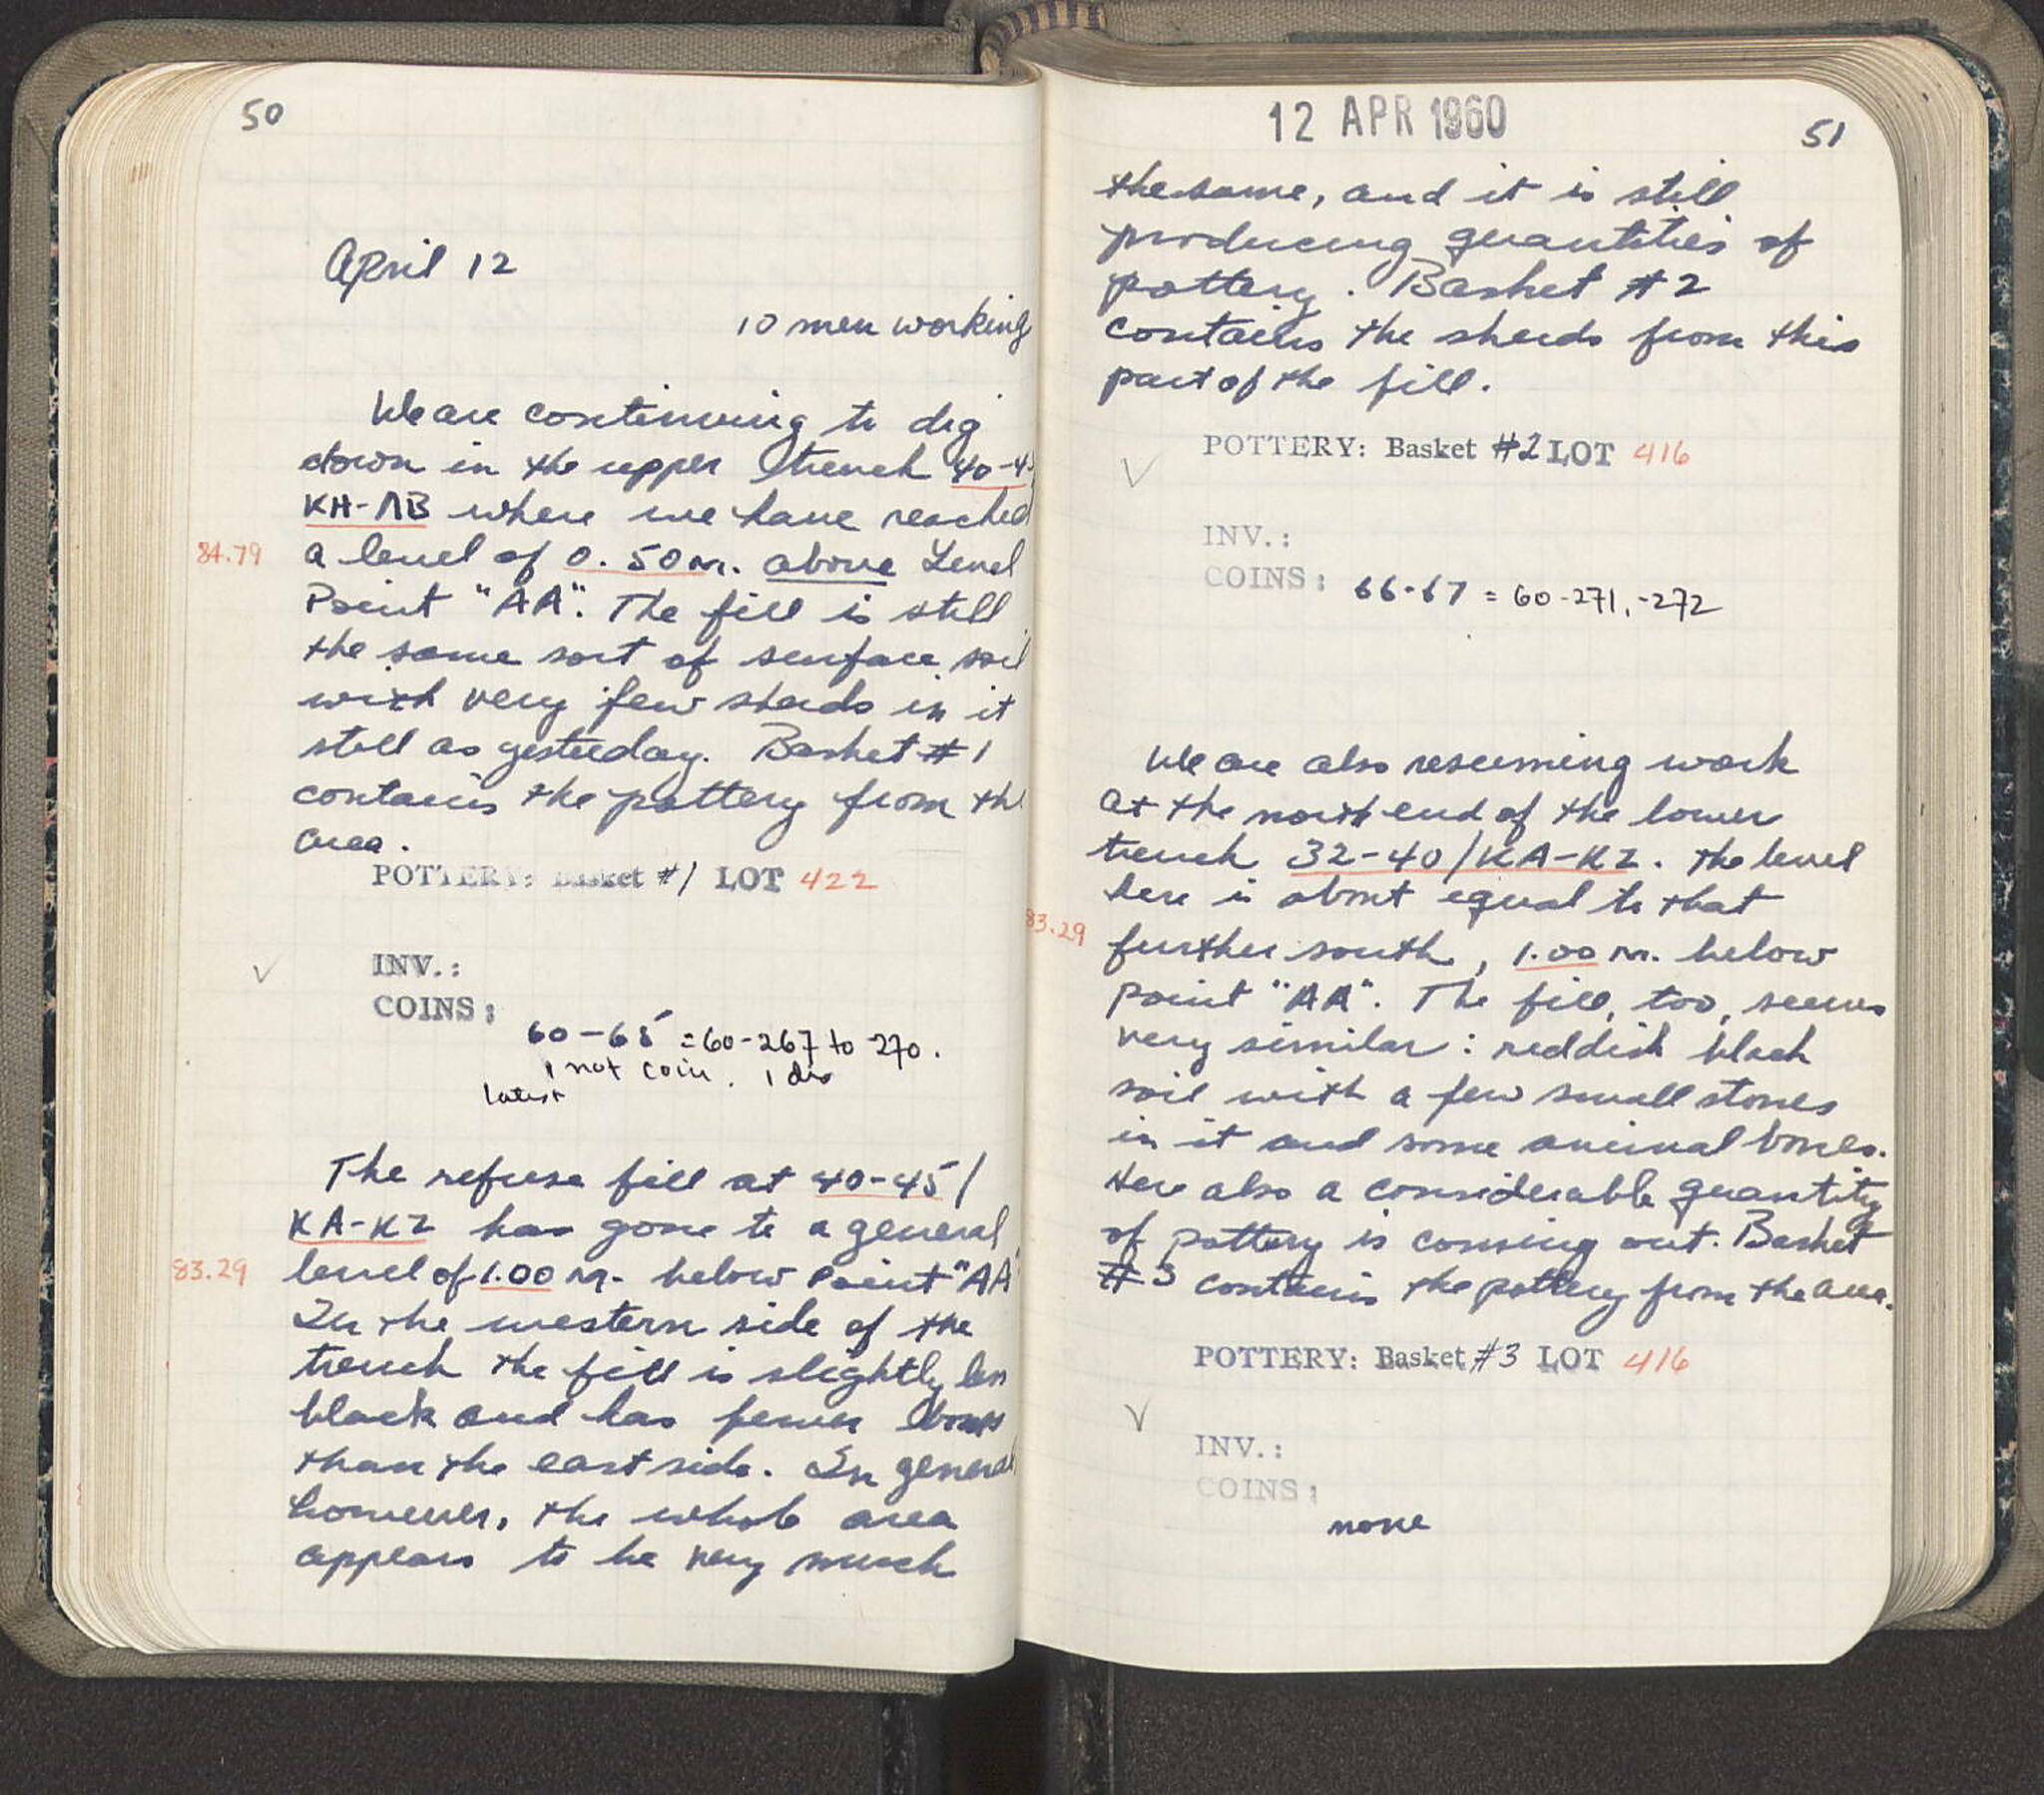 50
April 12
10 men working
We are continuing to dig
down in the upper trench 40-4
KH-ΛB where we have reached
84.79 a level of 0.50 m. above Level
Point "AA". The fill is still
the same sort of surface soil
with very few sherds in it
still as yesterday. Basket #1
contains the pottery from th
area.
POTTERY: Basket #1 LOT 422
INV.:
COINS:
60-65 = 60-267 to -270.
1 not coin. 1 dis
latest
The refuse fill at 40-45/
KA-KZ has gone to a general
83.29 level of 1.00 m. below Point "AA"
In the western side of the
trench the fill is slightly less
black and has fewer bones
than the east side. In general
however, the whole area
appears to be very much
12 APR 1960
51
the same, and it is still
producing quantities of
pottery. Basket #2
contains the sherds from this
part of the fill.
POTTERY: Basket #2 LOT 416
INV.:
COINS: 66-67 = 60-271, -272
We are also resuming work
at the north end of the lower
trench 32-40/KA-KZ. The level
here is about equal to that
83.29 further south, 1.00 m. below
point "AA". The fill, too, seems
very similar: reddish black
soil with a few small stones
in it and some animal bones.
Here also a considerable quantity
of pottery is coming out. Basket
#3 contains the pottery from the area.
POTTERY: Basket #3 LOT 416
INV.:
COINS:
none